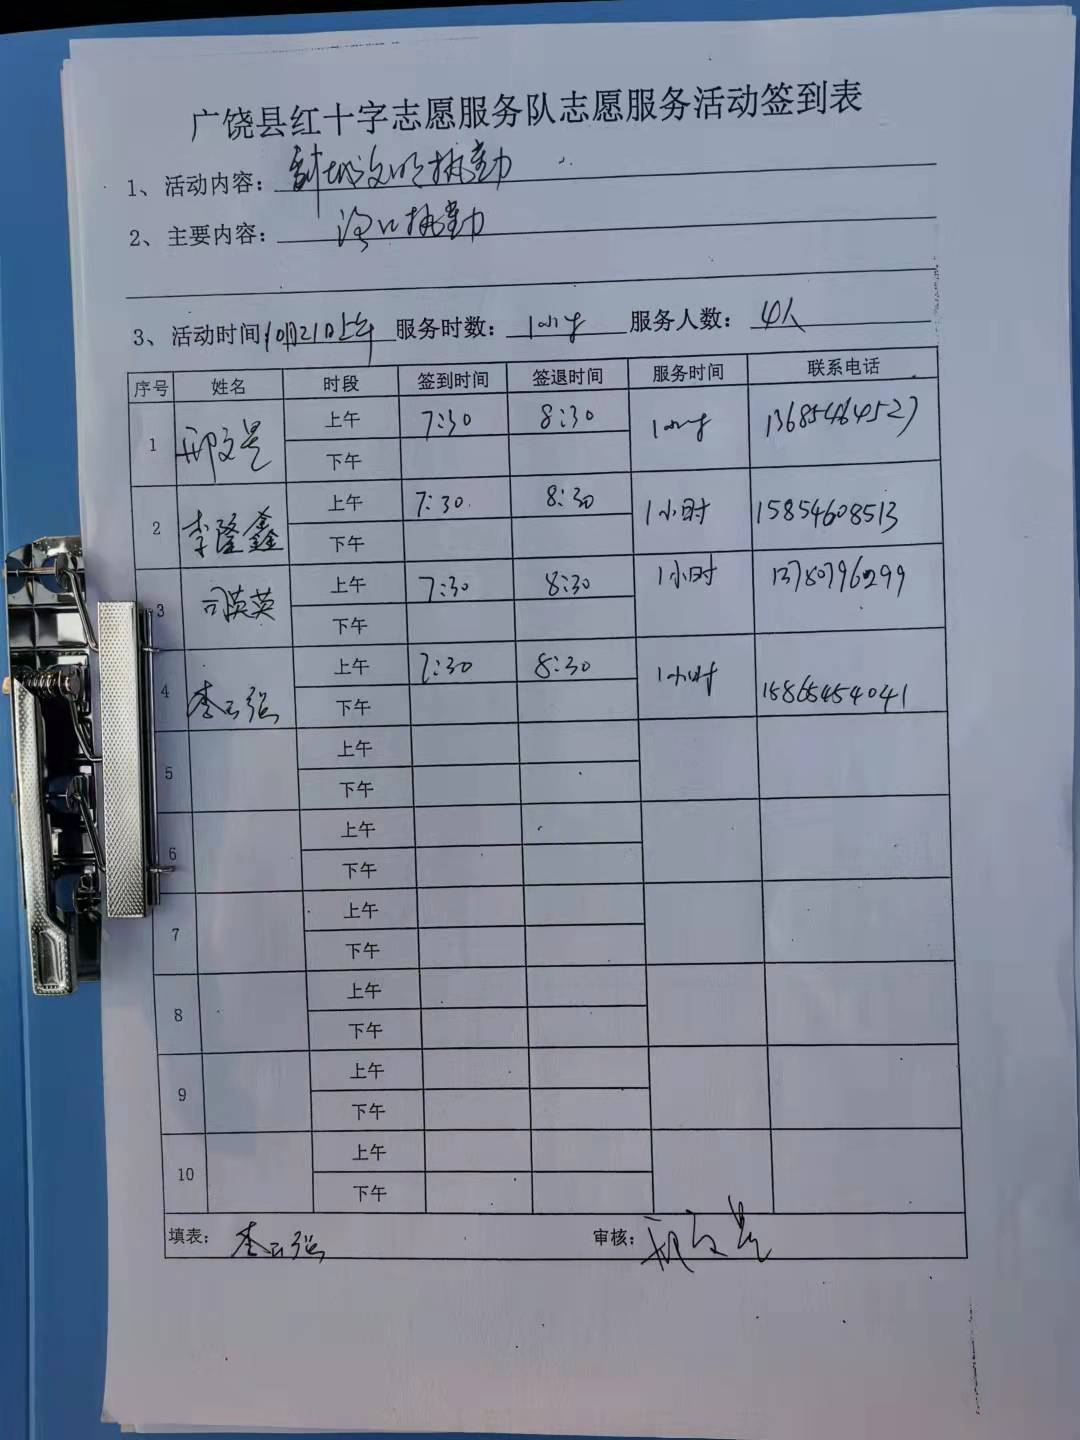 广饶县红十字志愿服务队志愿服务活动签到表
1、活动内容：文明执勤
2、主要内容：路口执勤
3、活动时间：10月21日上午 服务时数：1小时 服务人数：4人
序号 姓名 时段 签到时间 签退时间 服务时间 联系电话
1 邢文 上午 7:30 8:30 1小时 13685464527
下午
2 李隆鑫 上午 7:30 8:30 1小时 15854608513
下午
3 司英英 上午 7:30 8:30 1小时 13780796299
下午
4 李云强 上午 7:30 8:30 1小时 15865454041
下午
5 上午
下午
6 上午
下午
7 上午
下午
8 上午
下午
9 上午
下午
10 上午
下午
填表：李云强 审核：邢文